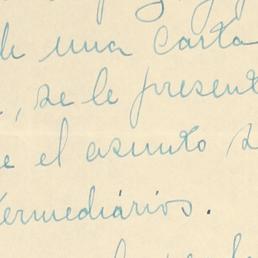 de una carta
, se le present
e el asunto s
termediários.